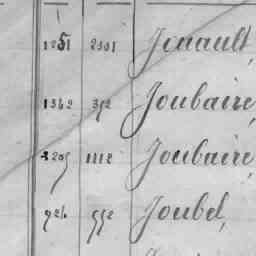 1251 2301 Jouault,
1362 352 Joubaire,
3205 1112 Joubaire,
926 552 Joubel,